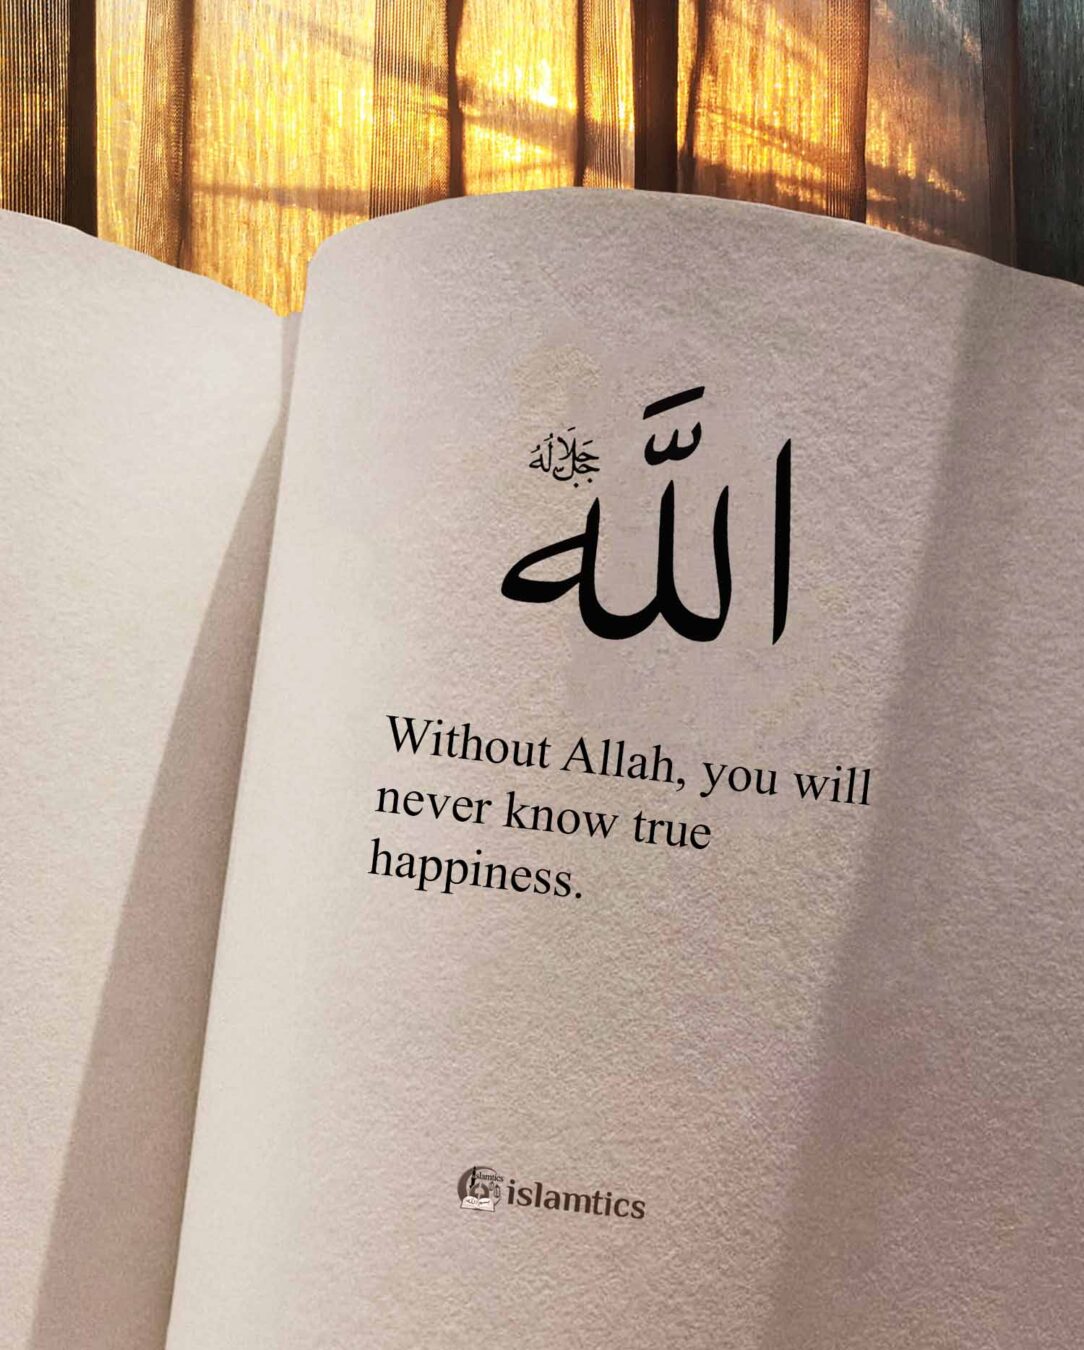 الله
جل جلاله
Without Allah, you will
never know true
happiness.
islamtics